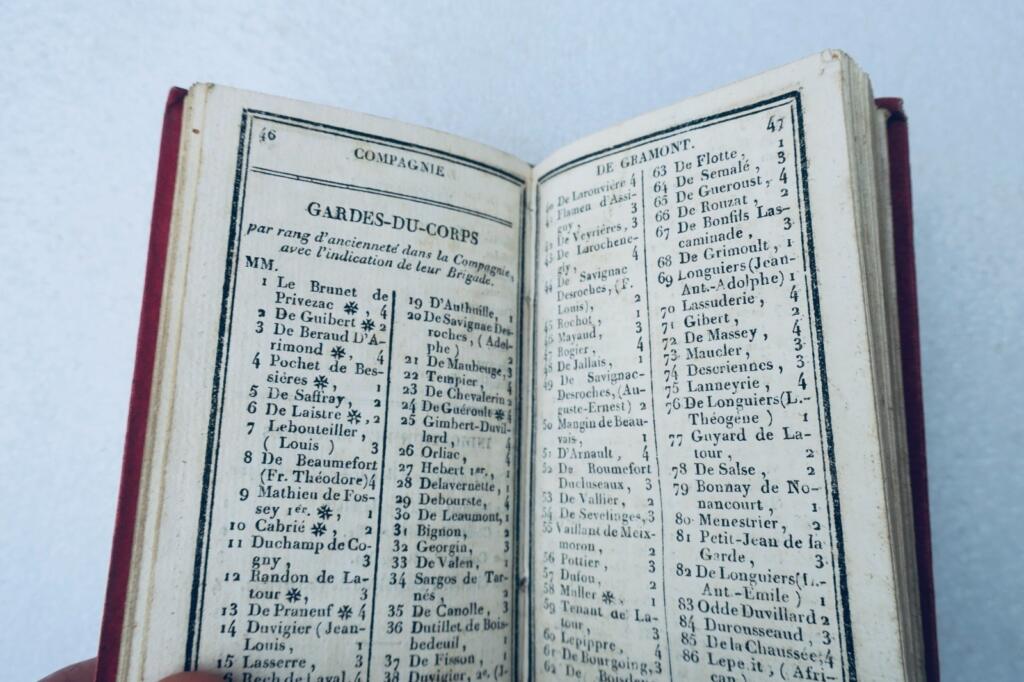 46
COMPAGNIE
GARDES-DU-CORPS
par rang d'ancienneté dans la Compagnie,
avec l'indication de leur Brigade.
MM.
1 Le Brunet de
Privezac ❋, 4
2 De Guibert ❋ 2
3 De Beraud D'A-
rimond ❋, 4
4 Pochet de Bes-
sières ❋, 1
5 De Saffray, 2
6 De Laistre ❋, 2
7 Lebouteiller,
(Louis) 3
8 De Beaumefort
(Fr. Théodore) 4
9 Mathieu de Fos-
sey 1er. ❋, 1
10 Cabrié ❋, 2
11 Duchamp de Co-
gny, 3
12 Randon de La-
tour ❋, 3
13 De Praneuf ❋ 4
14 Duvigier (Jean-
Louis, 1
15 Lasserre, 3
Rech de Laval, 4
19 D'Authuille, 1
20 De Savignac Des-
roches, (Adol-
phe) 2
21 De Maubeuge, 3
22 Tempier, 4
23 De Chevalerin 2
24 De Guéroult ❋ 4
25 Gimbert-Duvil-
lard, 4
26 Orliac, 4
27 Hebert 1er, 1
28 Delavernette, 1
29 Debourste, 4
30 De Leaumont, 1
31 Bignon, 2
32 Georgin, 3
33 De Valen, 1
34 Sargos de Tar-
nés, 2
35 De Canolle, 3
36 Dutillet de Bois-
bedeuil, 1
37 De Fisson, 1
38 Duvigier, 2e. (J-
47
DE GRAMONT.
De Larouvière 4
Flamen d'Assi-
gny, 3
De Veyrières, 3
De Larochene-
gly, 3
44 De Savignac
Desroches, (F.
Louis), 2
45 Rochot, 1
46 Mayaud, 3
47 Rogier, 4
48 De Jallais, 1
49 De Savignac-
Desroches, (Au-
guste-Ernest) 2
50 Mangin de Beau-
vais, 1
51 D'Arnault, 4
52 De Roumefort
Ducluseaux, 3
53 De Vallier, 2
54 De Sevelinges, 3
55 Vaillant de Meix-
moron, 2
56 Pottier, 3
57 Dufou, 2
58 Muller ❋, 1
59 Tenant de La-
tour, 3
60 Lepippre, 4
61 De Bourgoing, 3
62 De
63 De Flotte, 1
64 De Semalé, 3
65 De Gueroust, 4
66 De Rouzat, 2
67 De Bonfils Las-
caminade, 3
68 De Grimoult, 1
69 Longuiers (Jean-
Ant.-Adolphe) 1
70 Lassuderie, 4
71 Gibert, 2
72 De Massey, 4
73 Maucler, 3
74 Descriennes, 3
75 Lanneyrie, 4
76 De Longuiers (L.-
Théogène) 1
77 Guyard de La-
tour, 2
78 De Salse, 2
79 Bonnay de No-
nancourt, 1
80 Menestrier, 2
81 Petit-Jean de la
Garde, 3
82 De Longuiers (L.-
Ant.-Émile) 1
83 Odde Duvillard 2
84 Durousseaud, 3
85 De la Chaussée, 4
86 (Afri-
can, 4